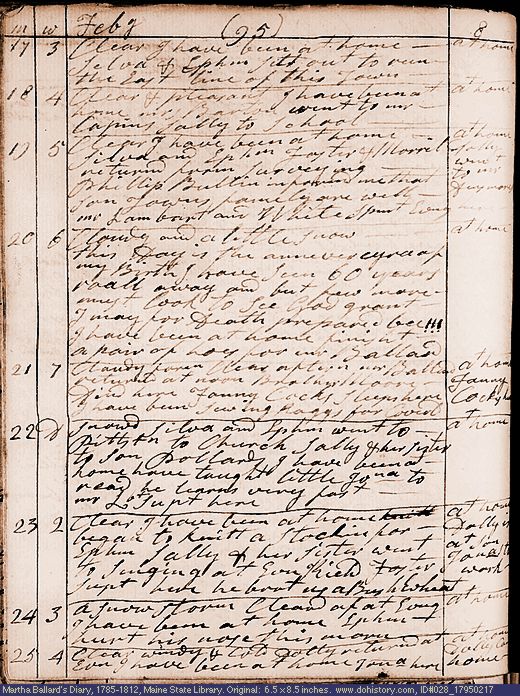 m w Feby (95) 8
17 3 Clear I have been at home at home
Silva & Ephm Sett out to run
the East line of this Town
18 4 Clear & pleasant I have been at at home
home mr went to mr
Sally to School
19 5 Clear I have been at home at home
Silva and Ephm Foster & Morrel Sally
returnd from Surveying went
Phillip Bullin informd me that to mr
Son Towns famely are well
mr Lambart and White Spent Evng
20 6 Cloudy and a little Snow at home
this Day is the annivercyra of
my Birth I have Seen 60 years
roall away and but few more
must look to See God grant
I may for Death prepared bee!!!
I have been at home finisht
a pair of hoes for mr Ballard
21 7 Cloudy foren Clear aftern mr Ballard at home
returnd at noon Brother Moore Fanny
Dind here Fanny Cocks Sleeps here Cocks here
I have been Sewing Raggs for Coverld
22 D Snowd Silva and Ephm went to at home
Pittston to Church Sally & her Sister
to Son Pollards I have been at
home have taught little Jona to
read he learns very fast
mr supt here
23 2 Clear I have been at home at home
began to knitt a Stockin for Dolly is
Ephm Sally & her Sister went at Son
to Singing at Evng Jona to
Supt here he brot us a Bush wheat work
24 3 a Snow Storm Cleard up at Evng at home
I have been at home Ephm
hurt his nose this morn
25 4 Clear windy & Cold Dolly returnd at at home
Evn I have been at home Jona here Dolly Came
home
Martha Ballard's Diary, 1785-1812, Maine State Library. Original: 6.5 x 8.5 inches. www.dohistory.com, ID#028_17950217